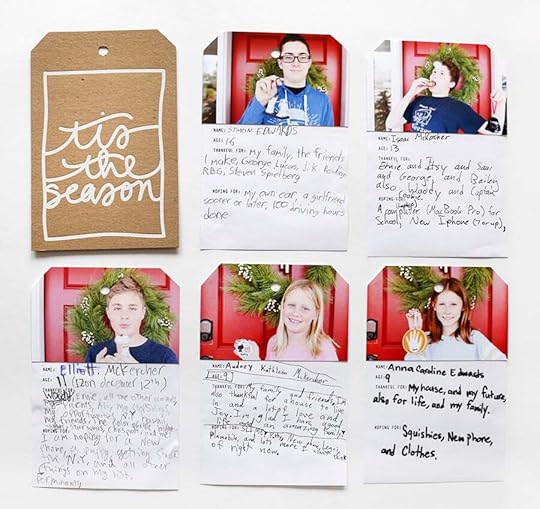 tis
the
season
NAME: SIMON EDWARDS
AGE: 16
THANKFUL FOR: my family, the friends
I make, George Lucas, J.K. Rowling
RBG, Steven Spielberg
HOPING FOR: my own car, a girlfriend
sooner or later, 100 driving hours
done
NAME: Isaac McKercher
AGE: 13
THANKFUL FOR:
Ernie and Itsy and Sam
and George, and Bailey
also and Captain
HOPING FOR:
A computer (MacBook Pro) for
School, New Iphone (7 or up),
NAME: Elliott McKercher
AGE: 11 (12 on december 12th)
THANKFUL FOR: Ernie, all the other
HOPING FOR:
I am hoping for a New
phone, a puppy,
and all other
things on my list,
NAME: Audrey Kathleen McKercher
AGE: 9
THANKFUL FOR: My family and friends, I'm
also thankful for a house to live
in and a lot of love and
Joy, I'm glad I have good
life and an amazing family
HOPING FOR:
Playmobile, and lots more I can't think
of right now.
NAME: Anna Caroline Edwards
AGE: 9
THANKFUL FOR: My house, and my future,
also for life, and my family.
HOPING FOR: Squishies, New phone,
and Clothes.